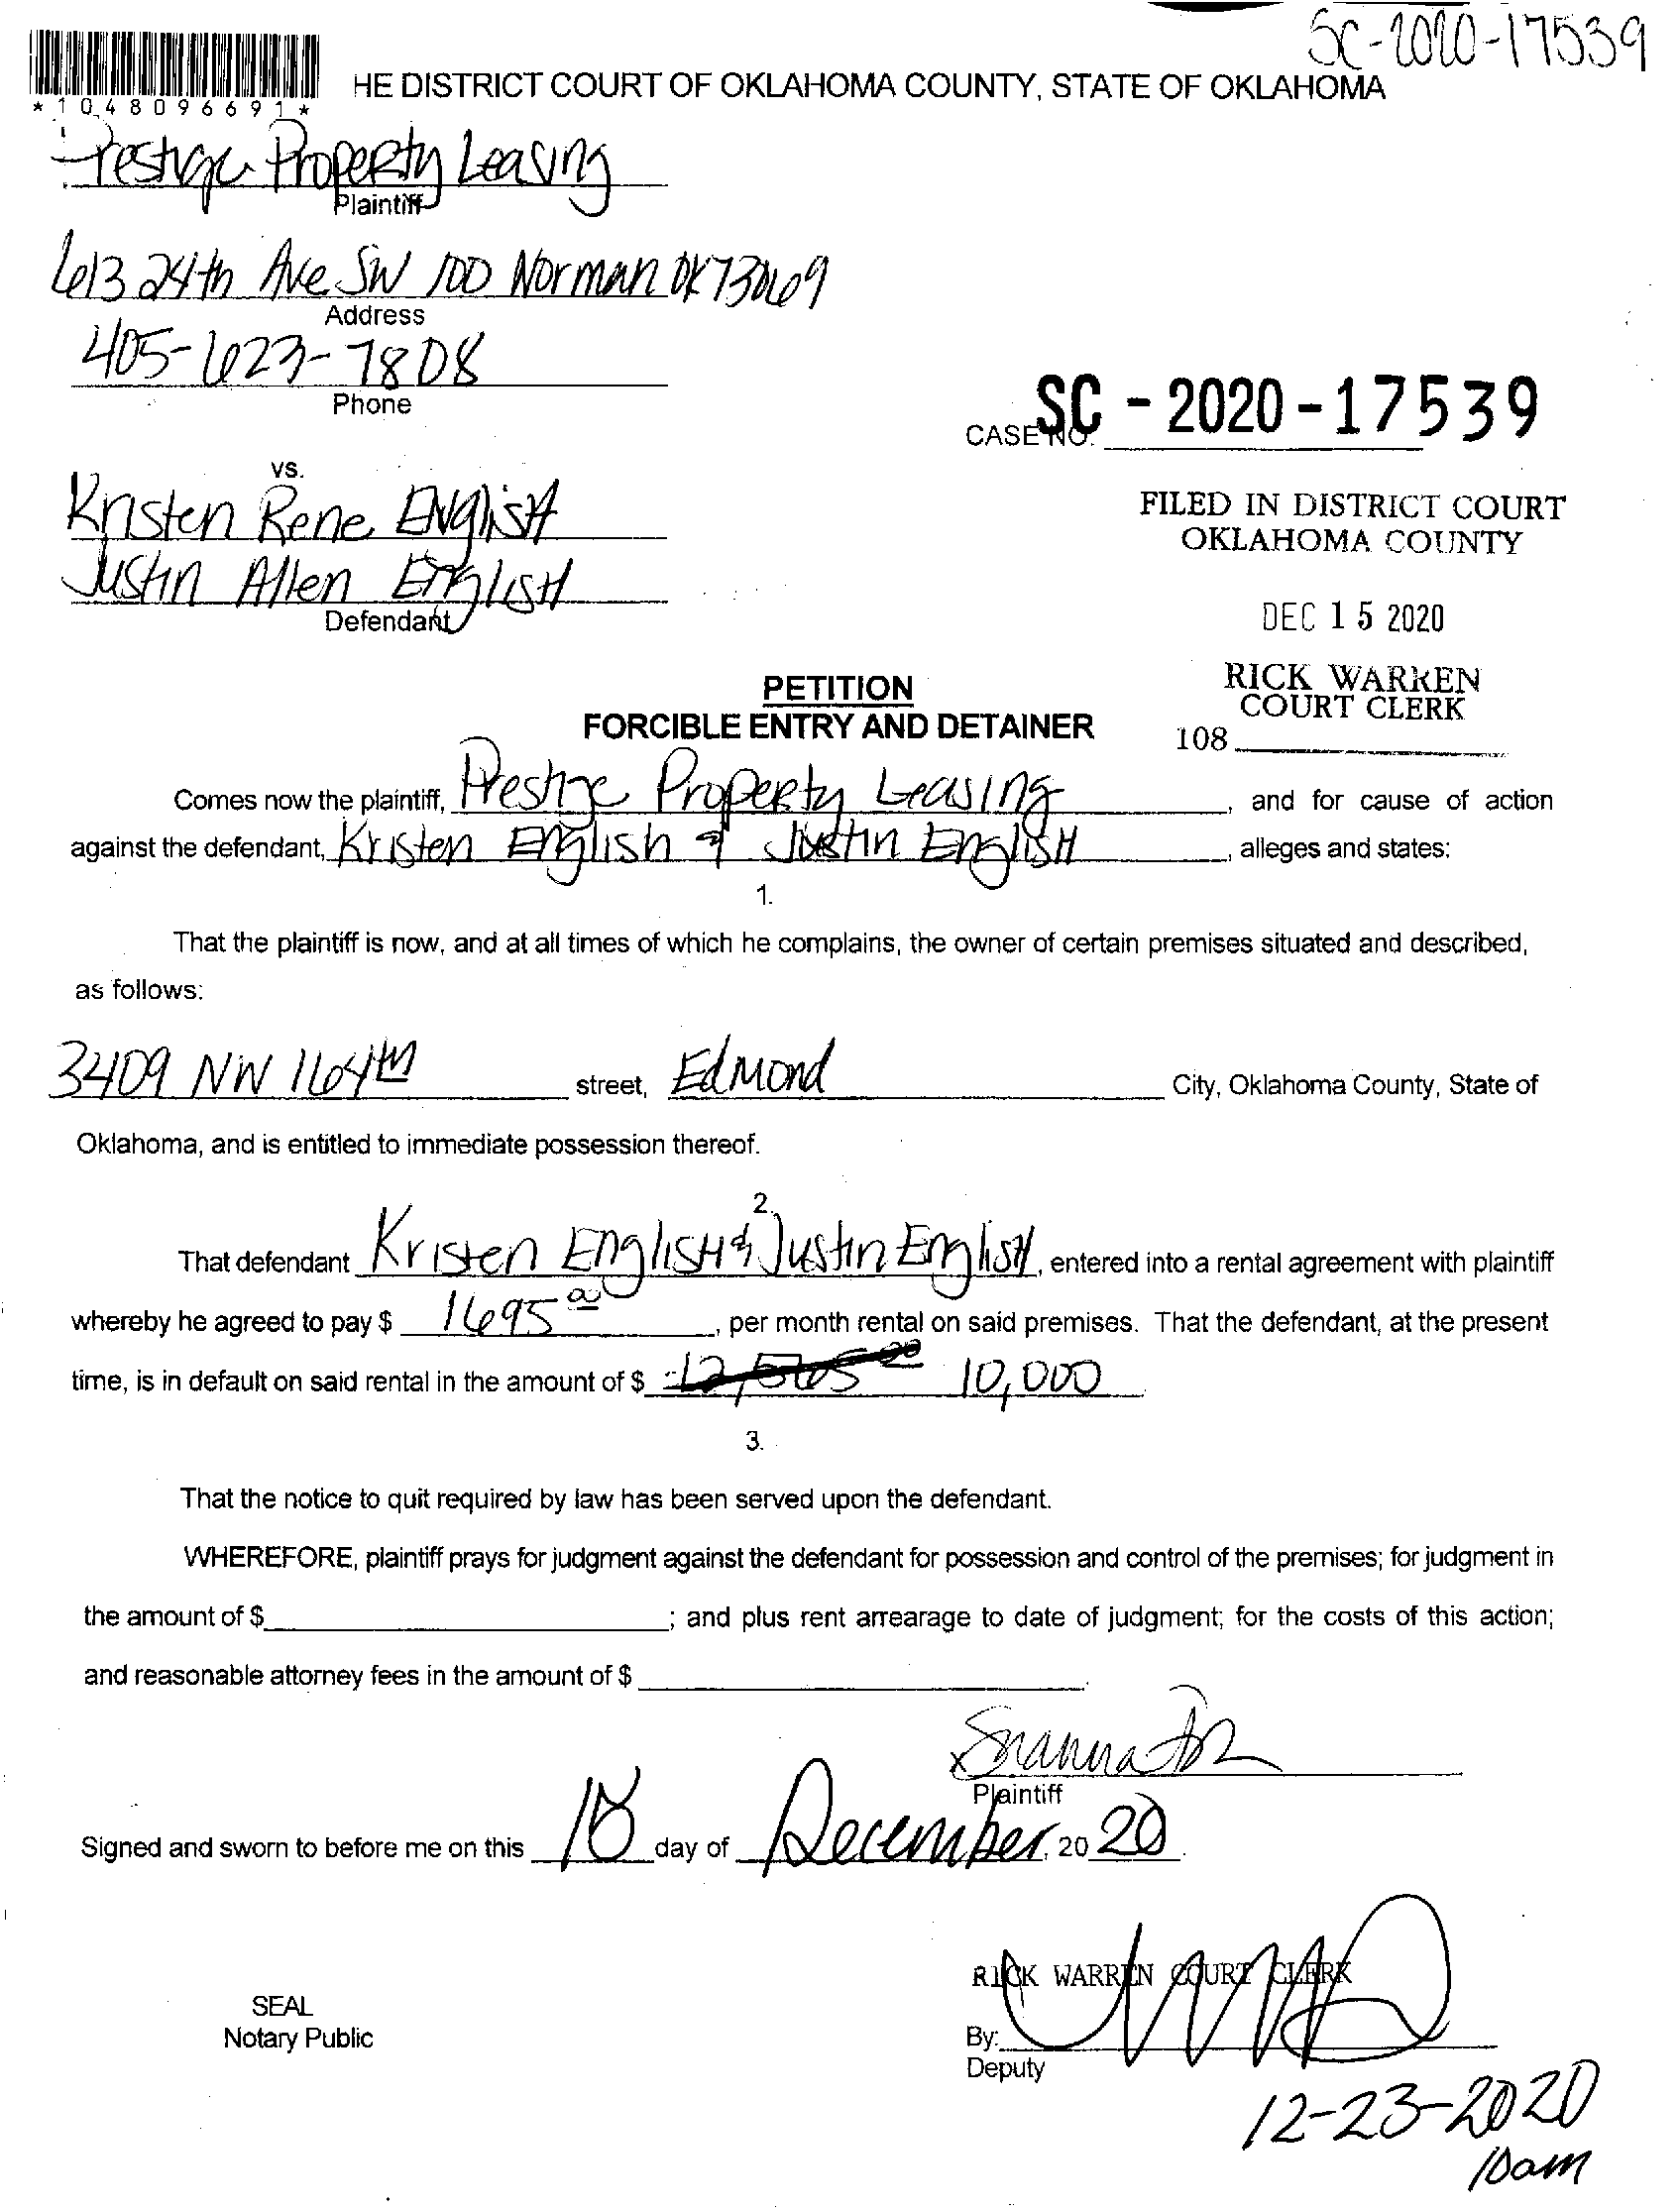 SC-2020-17539
*1048096691*
HE DISTRICT COURT OF OKLAHOMA COUNTY, STATE OF OKLAHOMA
Prestige Property Leasing
Plaintiff
613 24th Ave SW 100 Norman OK 73069
Address
405-623-7808
Phone
CASE NO. SC-2020-17539
vs.
Kristen Rene English
Justin Allen English
Defendant
FILED IN DISTRICT COURT
OKLAHOMA COUNTY
DEC 15 2020
RICK WARREN
COURT CLERK
108
PETITION
FORCIBLE ENTRY AND DETAINER
Comes now the plaintiff, Prestige Property Leasing, and for cause of action
against the defendant, Kristen English & Justin English, alleges and states:
1.
That the plaintiff is now, and at all times of which he complains, the owner of certain premises situated and described,
as follows:
3409 NW 164th street, Edmond City, Oklahoma County, State of
Oklahoma, and is entitled to immediate possession thereof.
2.
That defendant Kristen English & Justin English, entered into a rental agreement with plaintiff
whereby he agreed to pay $ 1695 00, per month rental on said premises. That the defendant, at the present
time, is in default on said rental in the amount of $ 10,000
3.
That the notice to quit required by law has been served upon the defendant.
WHEREFORE, plaintiff prays for judgment against the defendant for possession and control of the premises; for judgment in
the amount of $ ; and plus rent arrearage to date of judgment; for the costs of this action;
and reasonable attorney fees in the amount of $ .
x
Plaintiff
Signed and sworn to before me on this day of December, 20 20.
RICK WARREN COURT CLERK
SEAL
Notary Public
By:
Deputy
12-23-2020
10am